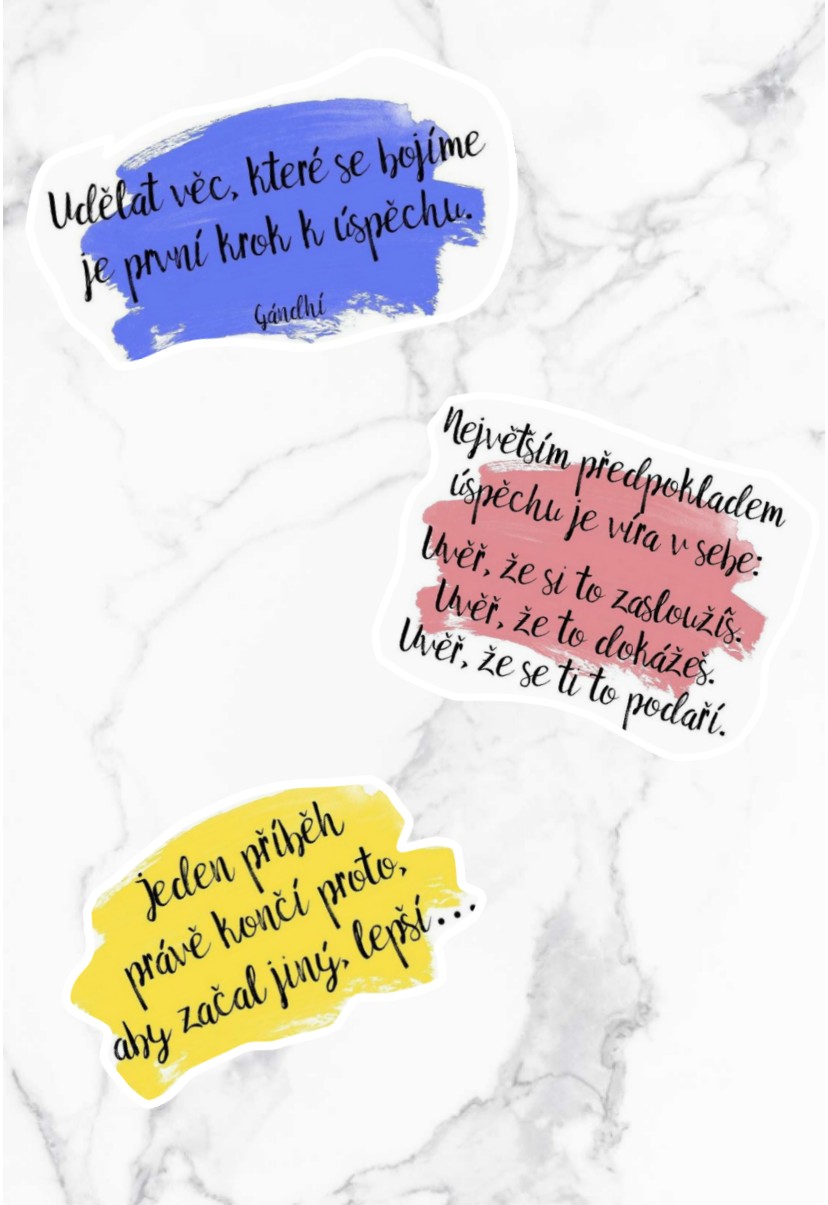 Udělat věc, které se bojíme
je první krok k úspěchu.
Gándhí
Největším předpokladem
úspěchu je víra v sebe:
Uvěř, že si to zasloužíš.
Uvěř, že to dokážeš.
Uvěř, že se ti to podaří.
jeden příběh
právě končí proto,
aby začal jiný, lepší...